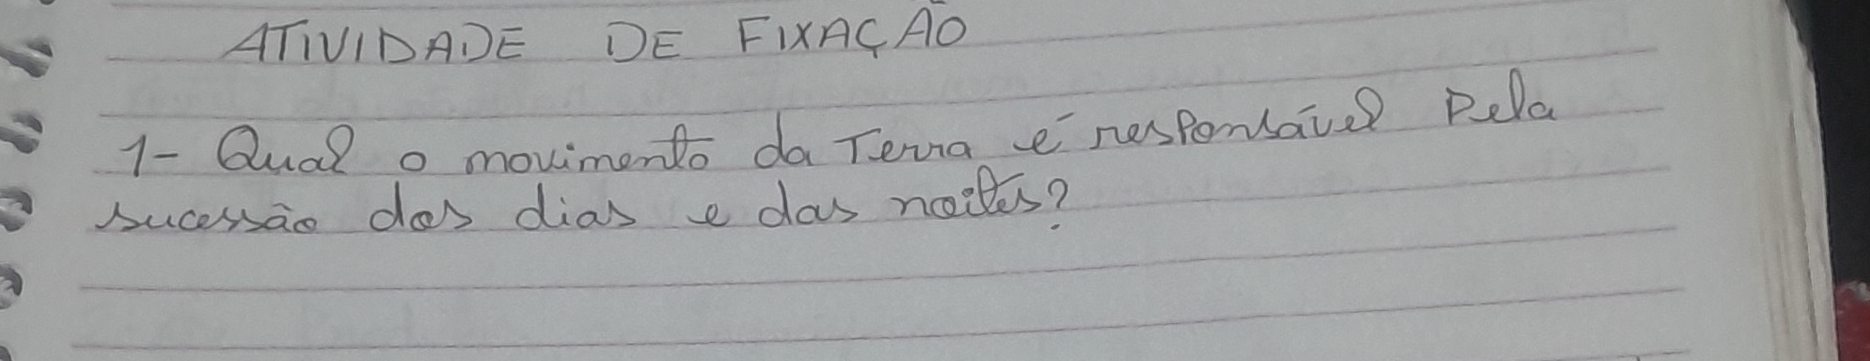 ATIVIDADE DE FIXAÇÃO
1- Qual o movimento da Terra é responsável pela
sucessão dos dias e das noites?